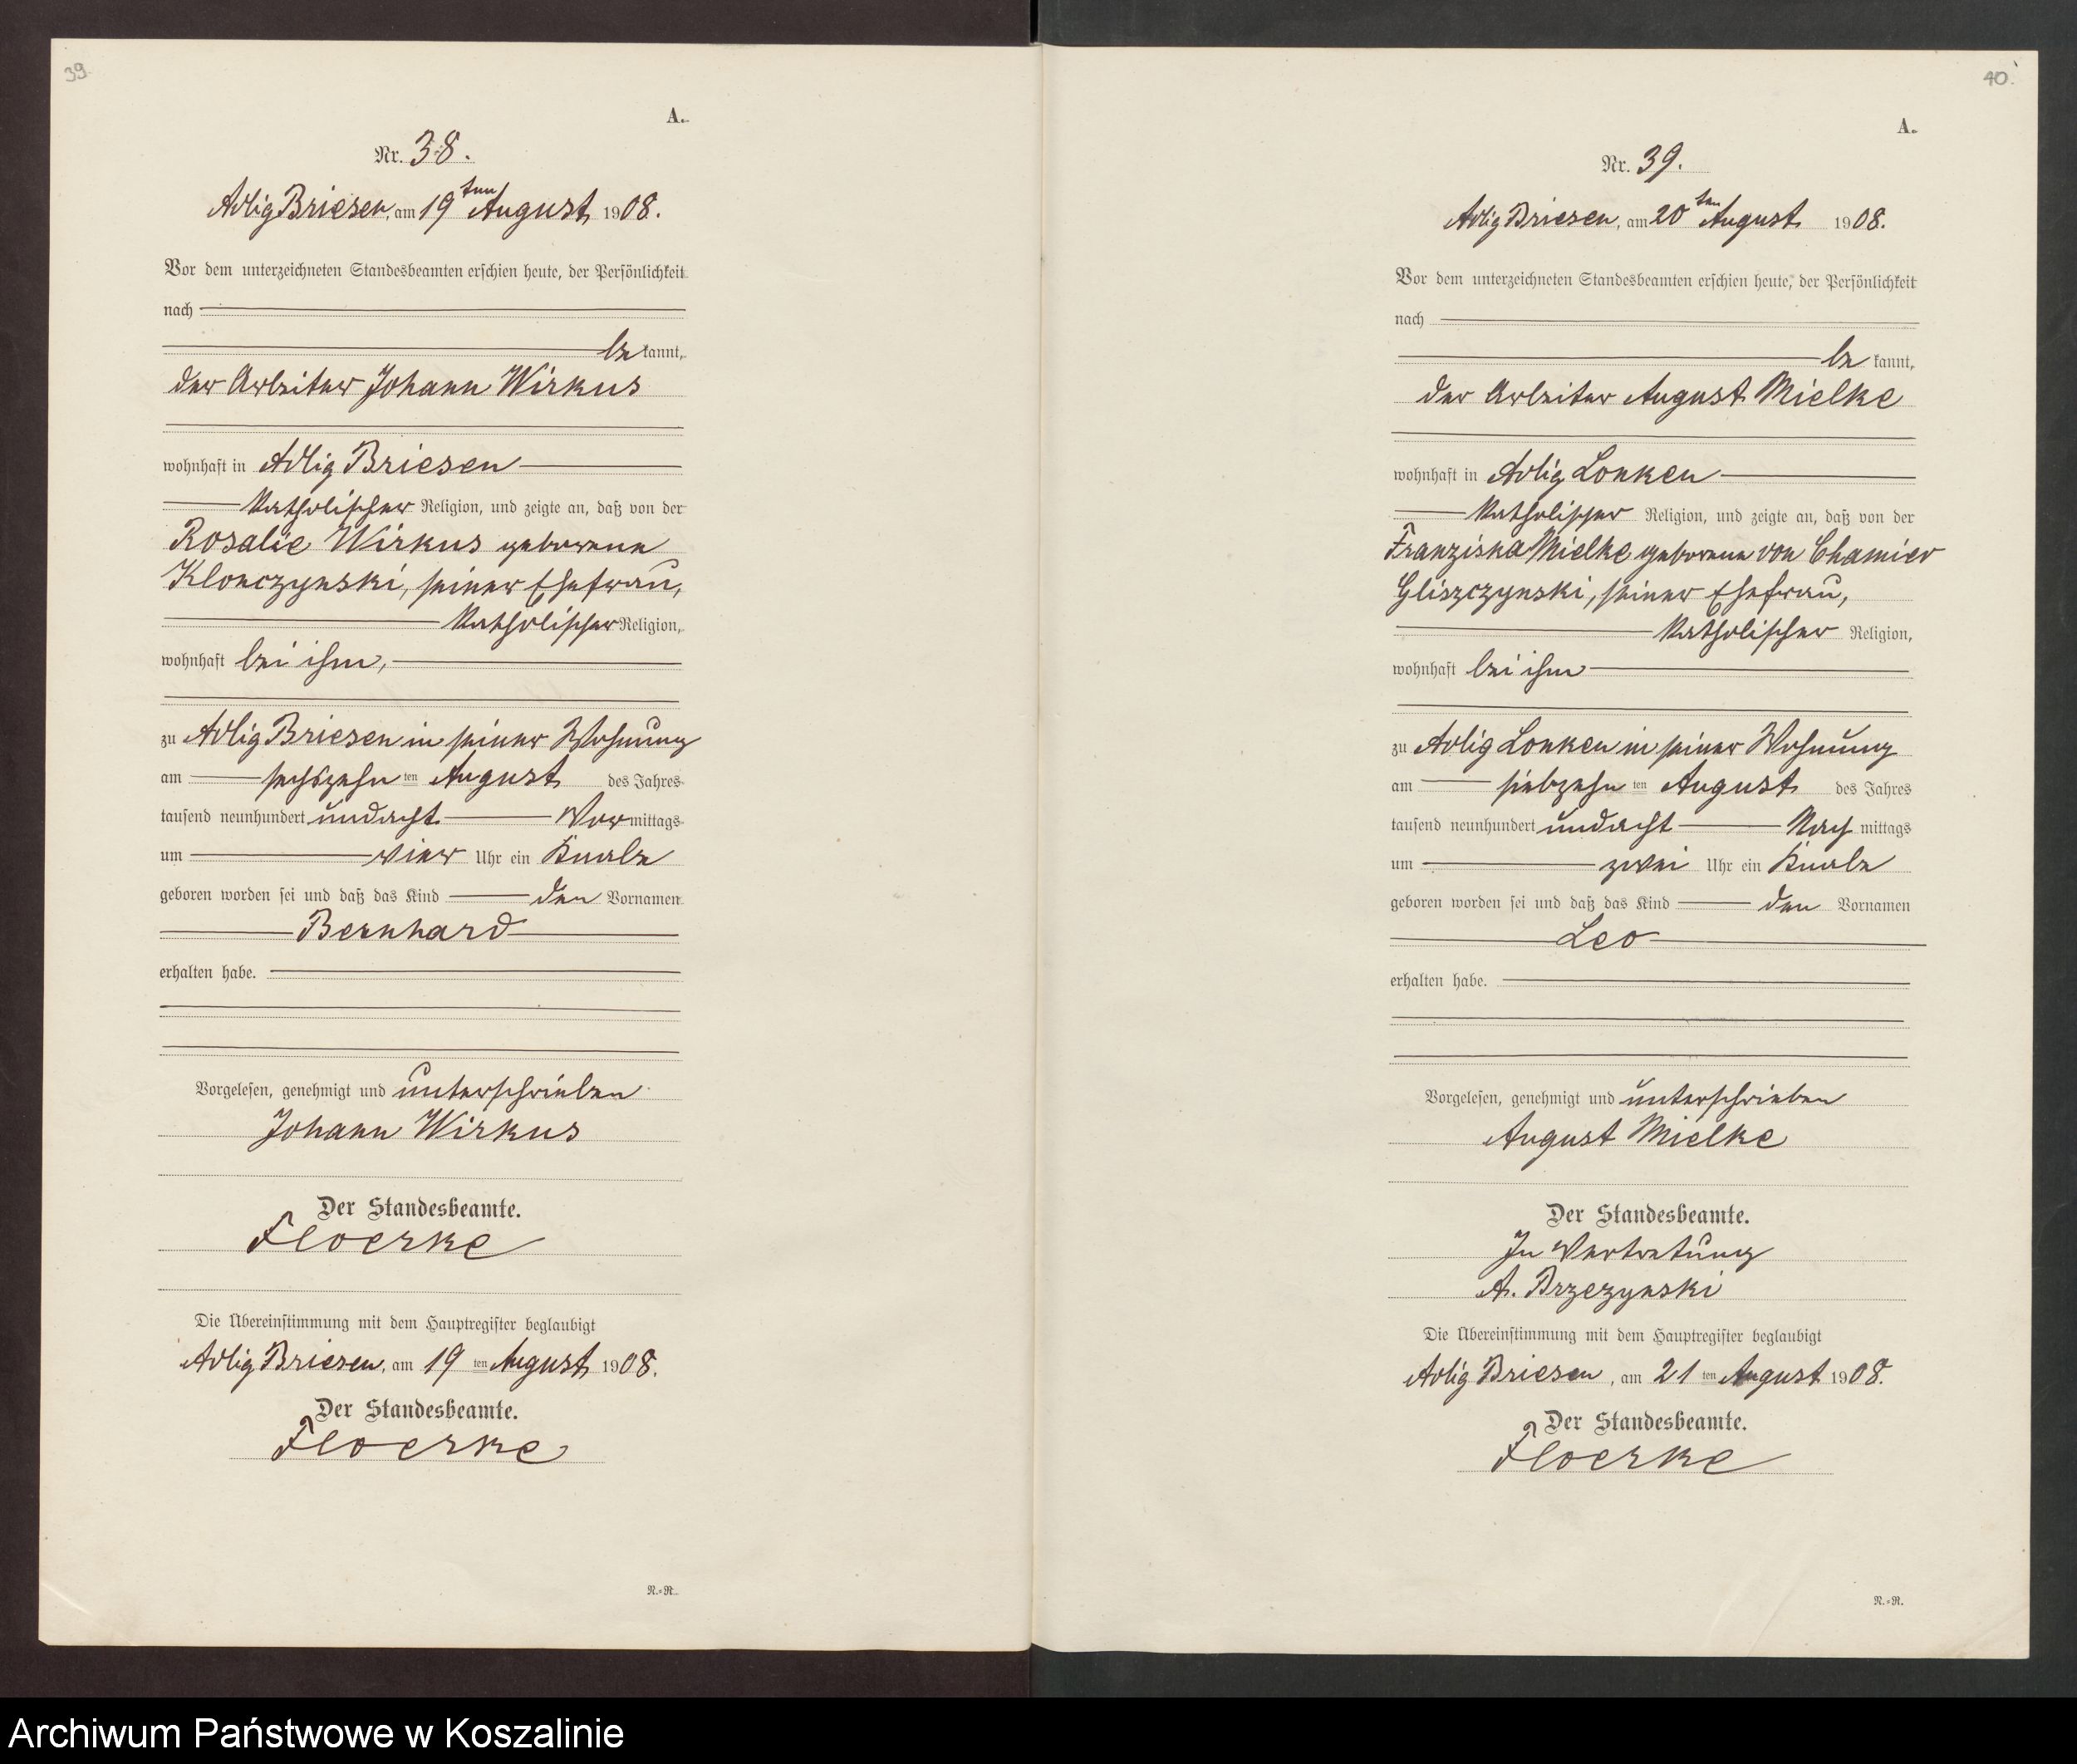 39.
A.
Nr. 38.
Adlig Briesen, am 19ten August 1908.
Vor dem unterzeichneten Standesbeamten erschien heute, der Persönlichkeit
nach
be kannt,
der Arbeiter Johann Wirkus
wohnhaft in Adlig Briesen
katholischer Religion, und zeigte an, daß von der
Rosalie Wirkus geborenen
Klonczynski, seiner Ehefrau,
katholischer Religion,
wohnhaft bei ihm,
zu Adlig Briesen in seiner Wohnung
am sechszehn ten August des Jahres
tausend neunhundert undacht Vor mittags
um vier Uhr ein Knabe
geboren worden sei und daß das Kind den Vornamen
Bernhard
erhalten habe.
Vorgelesen, genehmigt und unterschrieben
Johann Wirkus
Der Standesbeamte.
Floerke
Die Übereinstimmung mit dem Hauptregister beglaubigt
Adlig Briesen, am 19 ten August 1908.
Der Standesbeamte.
Floerke
N.=R.
40.
A.
Nr. 39.
Adlig Briesen, am 20ten August 1908.
Vor dem unterzeichneten Standesbeamten erschien heute, der Persönlichkeit
nach
be kannt,
der Arbeiter August Mielke
wohnhaft in Adlig Lonken
katholischer Religion, und zeigte an, daß von der
Franziska Mielke geborenen von Chamier
Gliszczynski, seiner Ehefrau,
katholischer Religion,
wohnhaft bei ihm
zu Adlig Lonken in seiner Wohnung
am siebzehn ten August des Jahres
tausend neunhundert undacht Nach mittags
um zwei Uhr ein Knabe
geboren worden sei und daß das Kind den Vornamen
Leo
erhalten habe.
Vorgelesen, genehmigt und unterschrieben
August Mielke
Der Standesbeamte.
In Vertretung
A. Brzezynski
Die Übereinstimmung mit dem Hauptregister beglaubigt
Adlig Briesen, am 21 ten August 1908.
Der Standesbeamte.
Floerke
N.=R.
Archiwum Państwowe w Koszalinie